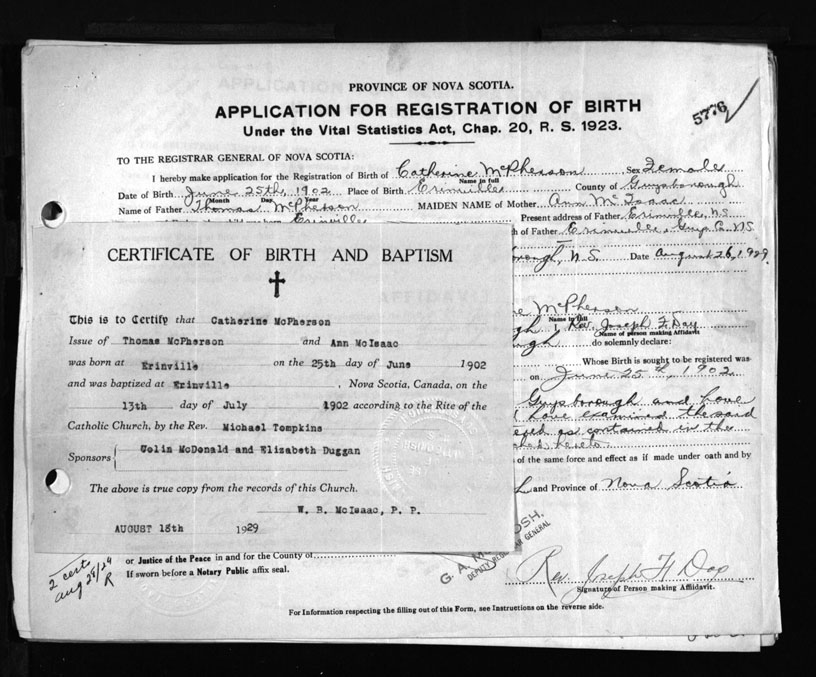 PROVINCE OF NOVA SCOTIA.
APPLICATION FOR REGISTRATION OF BIRTH
Under the Vital Statistics Act, Chap. 20, R. S. 1923.
5776
TO THE REGISTRAR GENERAL OF NOVA SCOTIA:
I hereby make application for the Registration of Birth of Catherine McPherson Sex Female
Name in full
Date of Birth June 25th, 1902 Place of Birth Erinville County of Guysborough
Month Day Year
Name of Father Thomas McPherson MAIDEN NAME of Mother Ann McIsaac
Erinville Present address of Father Erinville, N.S.
of Father Erinville, Guys. Co. N.S.
N.S. Date August 26, 1929.
CERTIFICATE OF BIRTH AND BAPTISM
This is to Certify that Catherine McPherson
Issue of Thomas McPherson and Ann McIsaac
was born at Erinville on the 25th day of June 1902
and was baptized at Erinville, Nova Scotia, Canada, on the
13th day of July 1902 according to the Rite of the
Catholic Church, by the Rev. Michael Tompkins
Sponsors Colin McDonald and Elizabeth Duggan
The above is true copy from the records of this Church.
W. B. McIsaac, P. P.
AUGUST 18th 1929
McPherson
Name in full
I, Rev. Joseph F. Day
Name of person making Affidavit
do solemnly declare:
Whose Birth is sought to be registered was
on June 25th, 1902
Guysborough and have
I have examined the said
as contained in the
hereto.
of the same force and effect as if made under oath and by
and Province of Nova Scotia
DEPUTY REGISTRAR GENERAL
2 cert
R
or Justice of the Peace in and for the County of
If sworn before a Notary Public affix seal.
Rev. Joseph F. Day
Signature of Person making Affidavit.
For Information respecting the filling out of this Form, see Instructions on the reverse side.